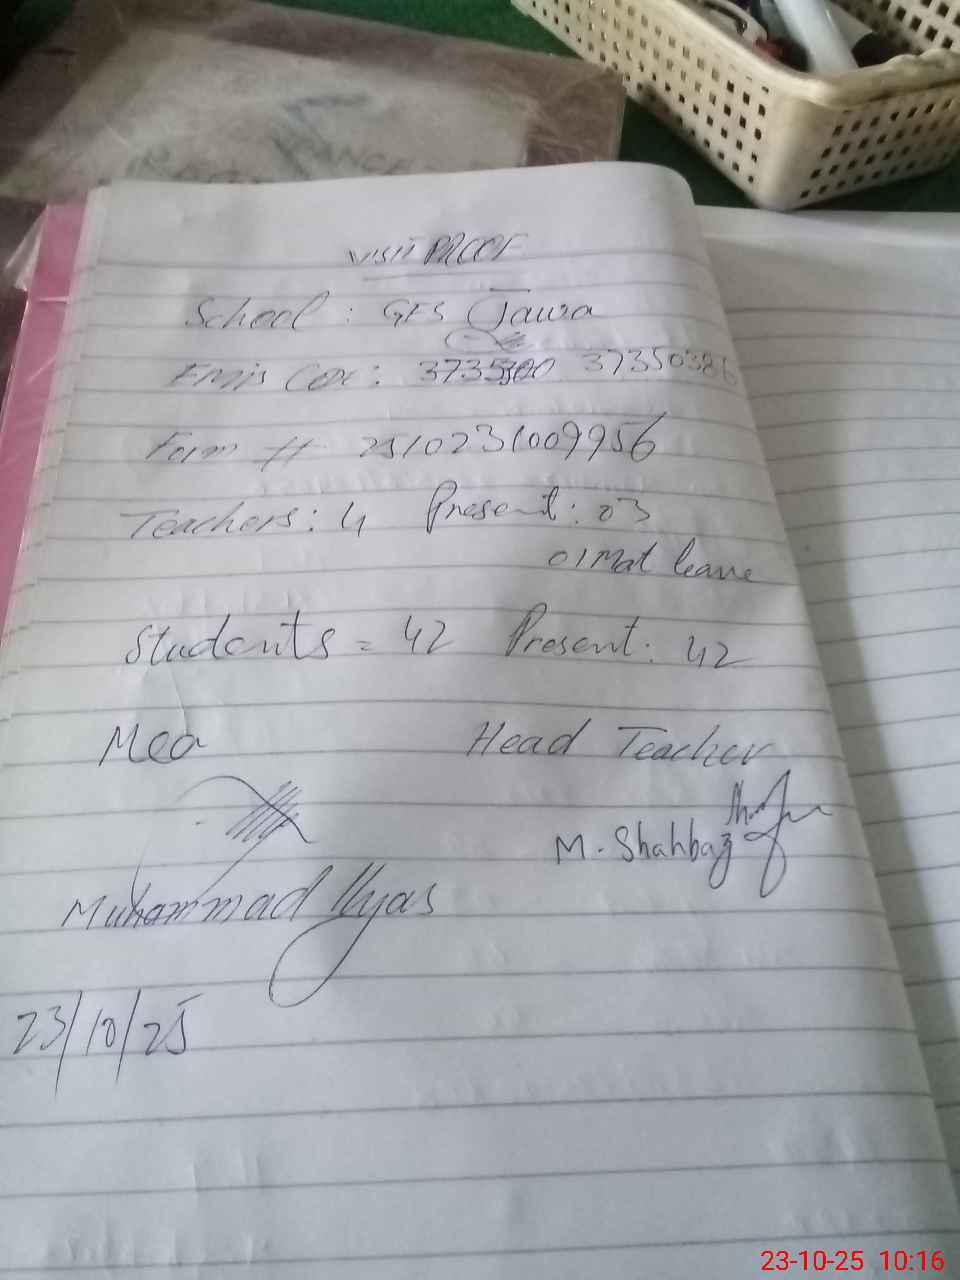 VISIT PROOF
School : GES Jawra
Emis Code : 37350386
Form # 2510231009956
Teachers : 4 Present : 03
01 Mat leave
Students = 42 Present : 42
Mea Head Teacher
M. Shahbaz
Muhammad Ilyas
23/10/25
23-10-25 10:16